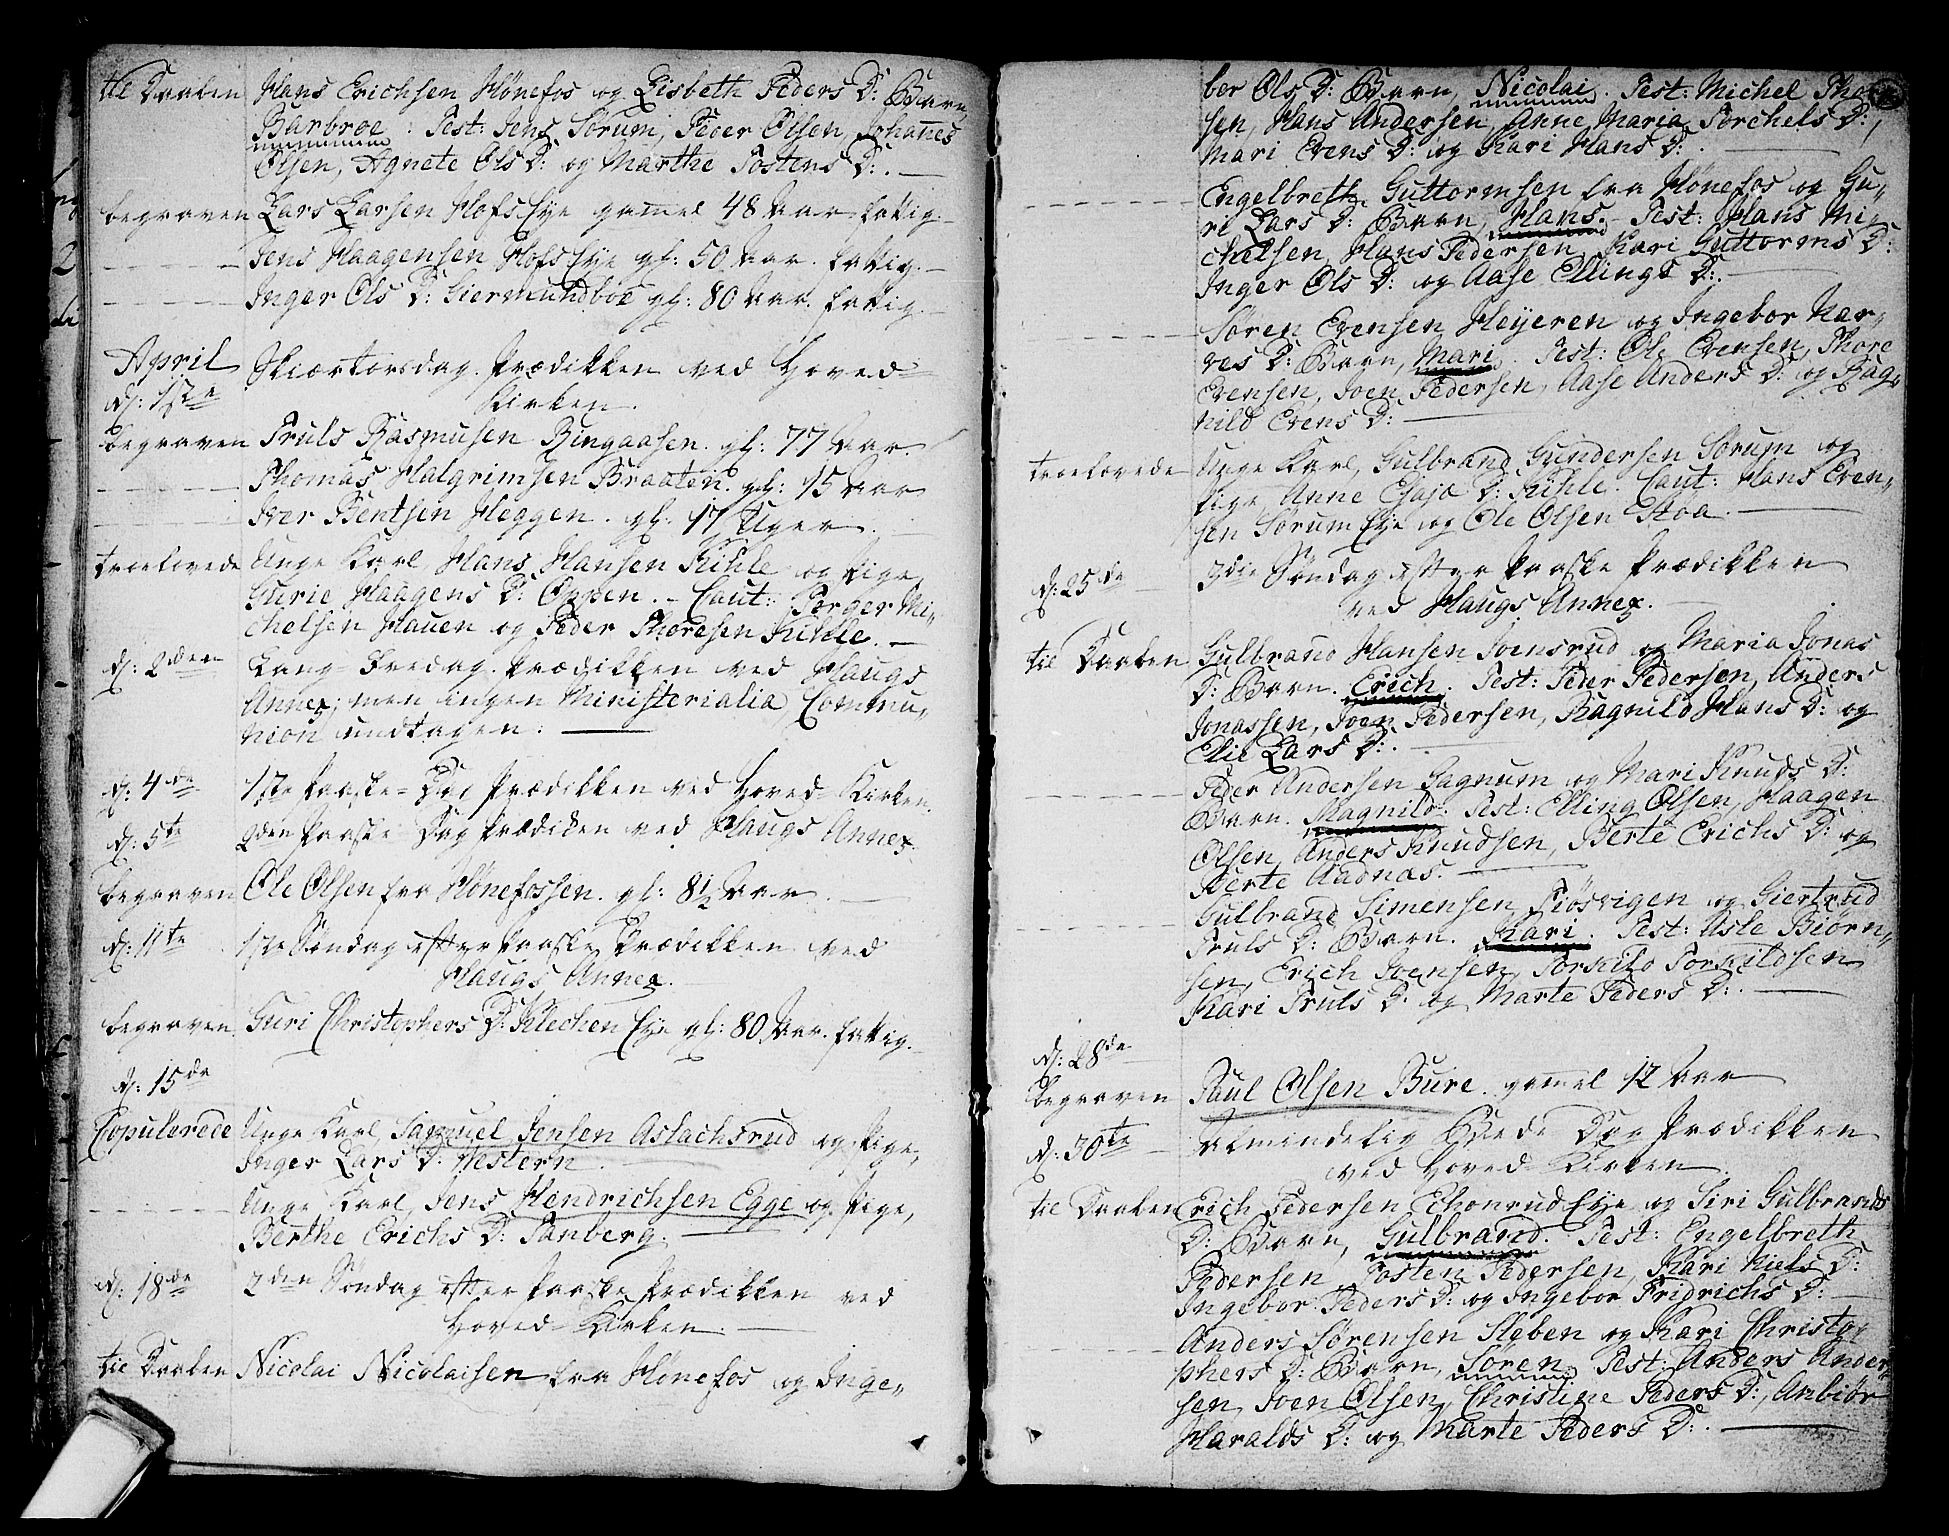 til Daaben Hans Erichsen Hønefos og Lisbeth Peders D: Barn
Barbroe. Test: Jens Sørum, Peder Olsen, Johannes
Olsen, Agnete Ols D: og Marthe Tostens D:.
begraven Lars Larsen Hofs Eye gamel 48 Aar fattig.
Jens Haagensen Hofs Eye gl: 50 Aar. fattig.
Inger Ols D: Giermundboe gl: 80 Aar. fattig.
April Skiærtorsdag. Prædikken ved Hoved-
d: 1ste Kirken.
begraven Truls Rasmusen Ringaasen. gl: 77 Aar.
Thomas Halgrimsen Braaten. gl: 15 Aar
Iver Bentsen Heggen. gl: 17 Uger.
troelovede Unge Karl, Hans Hansen Kihle og Pige
Gurie Haagens D: Oppen. - Caut: Børger Mi-
chelsen Hauen og Peder Thoresen Kihle.
d: 2den Lang-Fredag. Prædikken ved Haugs
Annex; men ingen Ministerialia, Commu-
nion undtagen.
d: 4de 1ste Paaske-Dag Prædikken ved Hoved-Kirken.
d: 5te 2den Paaske-Dag Prædiken ved Haugs Annex.
begraven Ole Olsen fra Hønefossen. gl: 8½ Aar.
d: 11te 1ste Søndag efter Paaske Prædikken ved
Haugs Annex.
begraven Guri Christophers D: Klechen Eye gl: 80 Aar. fattig.
d: 15de
Copulerede Unge Karl, Samuel Jensen Aslachsrud og Pige,
Inger Lars D: Western.
Unge Karl, Jens Hendrichsen Egge og Pige,
Berthe Erichs D: Tanberg.
d: 18de 2den Søndag efter Paaske Prædikken ved
Hoved-Kirken.
til Daaben Nicolai Nicolaisen fra Hønefos og Inge-
bor Ols D: Barn, Nicolai. Test: Michel Tho-
sen, Hans Andersen, Anne Maria Torchels D:,
Mari Evens D: og Kari Hans D:.
Engelbreth Guttormsen fra Hønefos og Gu-
ri Lars D: Barn, Hans. Test: Hans Mi-
chelsen, Hans Pedersen, Kari Guttorms D:
Inger Ols D: og Aase Ellings D:.
Søren Evensen Heyeren og Ingebor Har-
ves D: Barn, Mari. Test: Ole Evensen, Thore
Evensen, Joen Pedersen, Aase Anders D: og Rag-
nild Evens D:
troelovede Unge Karl, Gulbrand Gundersen Sørum og
Pige Anne Esajæ D: Kihle. Caut: Hans Even-
sen Sørum Eye og Ole Olsen Stoa.
d: 25de 3die Søndag efter Paaske Prædikken
ved Haugs Annex.
til Daaben Gulbrand Hansen Joensrud og Maria Jonas
D: Barn. Erich. Test: Peder Pedersen, Anders
Jonassen, Joen Pedersen, Ragnild Hans D: og
Elie Lars D:.
Peder Andersen Sagnum og Mari Knuds D:
Barn. Magnild. Test: Elling Olsen, Haagen
Olsen, Anders Knudsen, Berte Erichs D: og
Berte Audnæs.
Gulbrand Simensen Tiøsvigen og Giertrud
Truls D: Barn. Kari. Test: Asle Biørn-
sen, Erich Joensen, Torkild Torkildsen
Kari Truls D: og Marte Peders D:.
d: 28de
begraven Paul Olsen Bure. gamel 12 Aar
d: 30te Almindelig Beede Dag Prædikken
ved Hoved-Kirken.
til Daaben Erich Pedersen Echonrud Eye og Siri Gulbrands
D: Barn, Gulbrand. Test: Engelbreth
Pedersen, Tosten Pedersen, Kari Niels D:
Ingebor Peders D: og Ingebor Fridrichs D:
Anders Sørensen Aleben og Kari Christo-
phers D: Barn, Søren. Test: Anders Ander-
sen, Joen Olsen, Christine Peders D:, Anbiør
Haralds D: og Marte Peders D:.